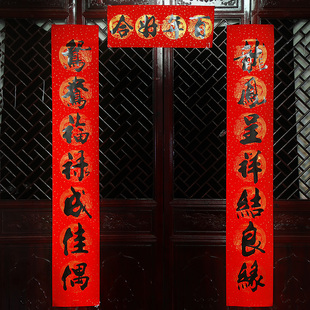 百年好合
龍鳳呈祥結良緣
鴛鴦福禄成佳偶